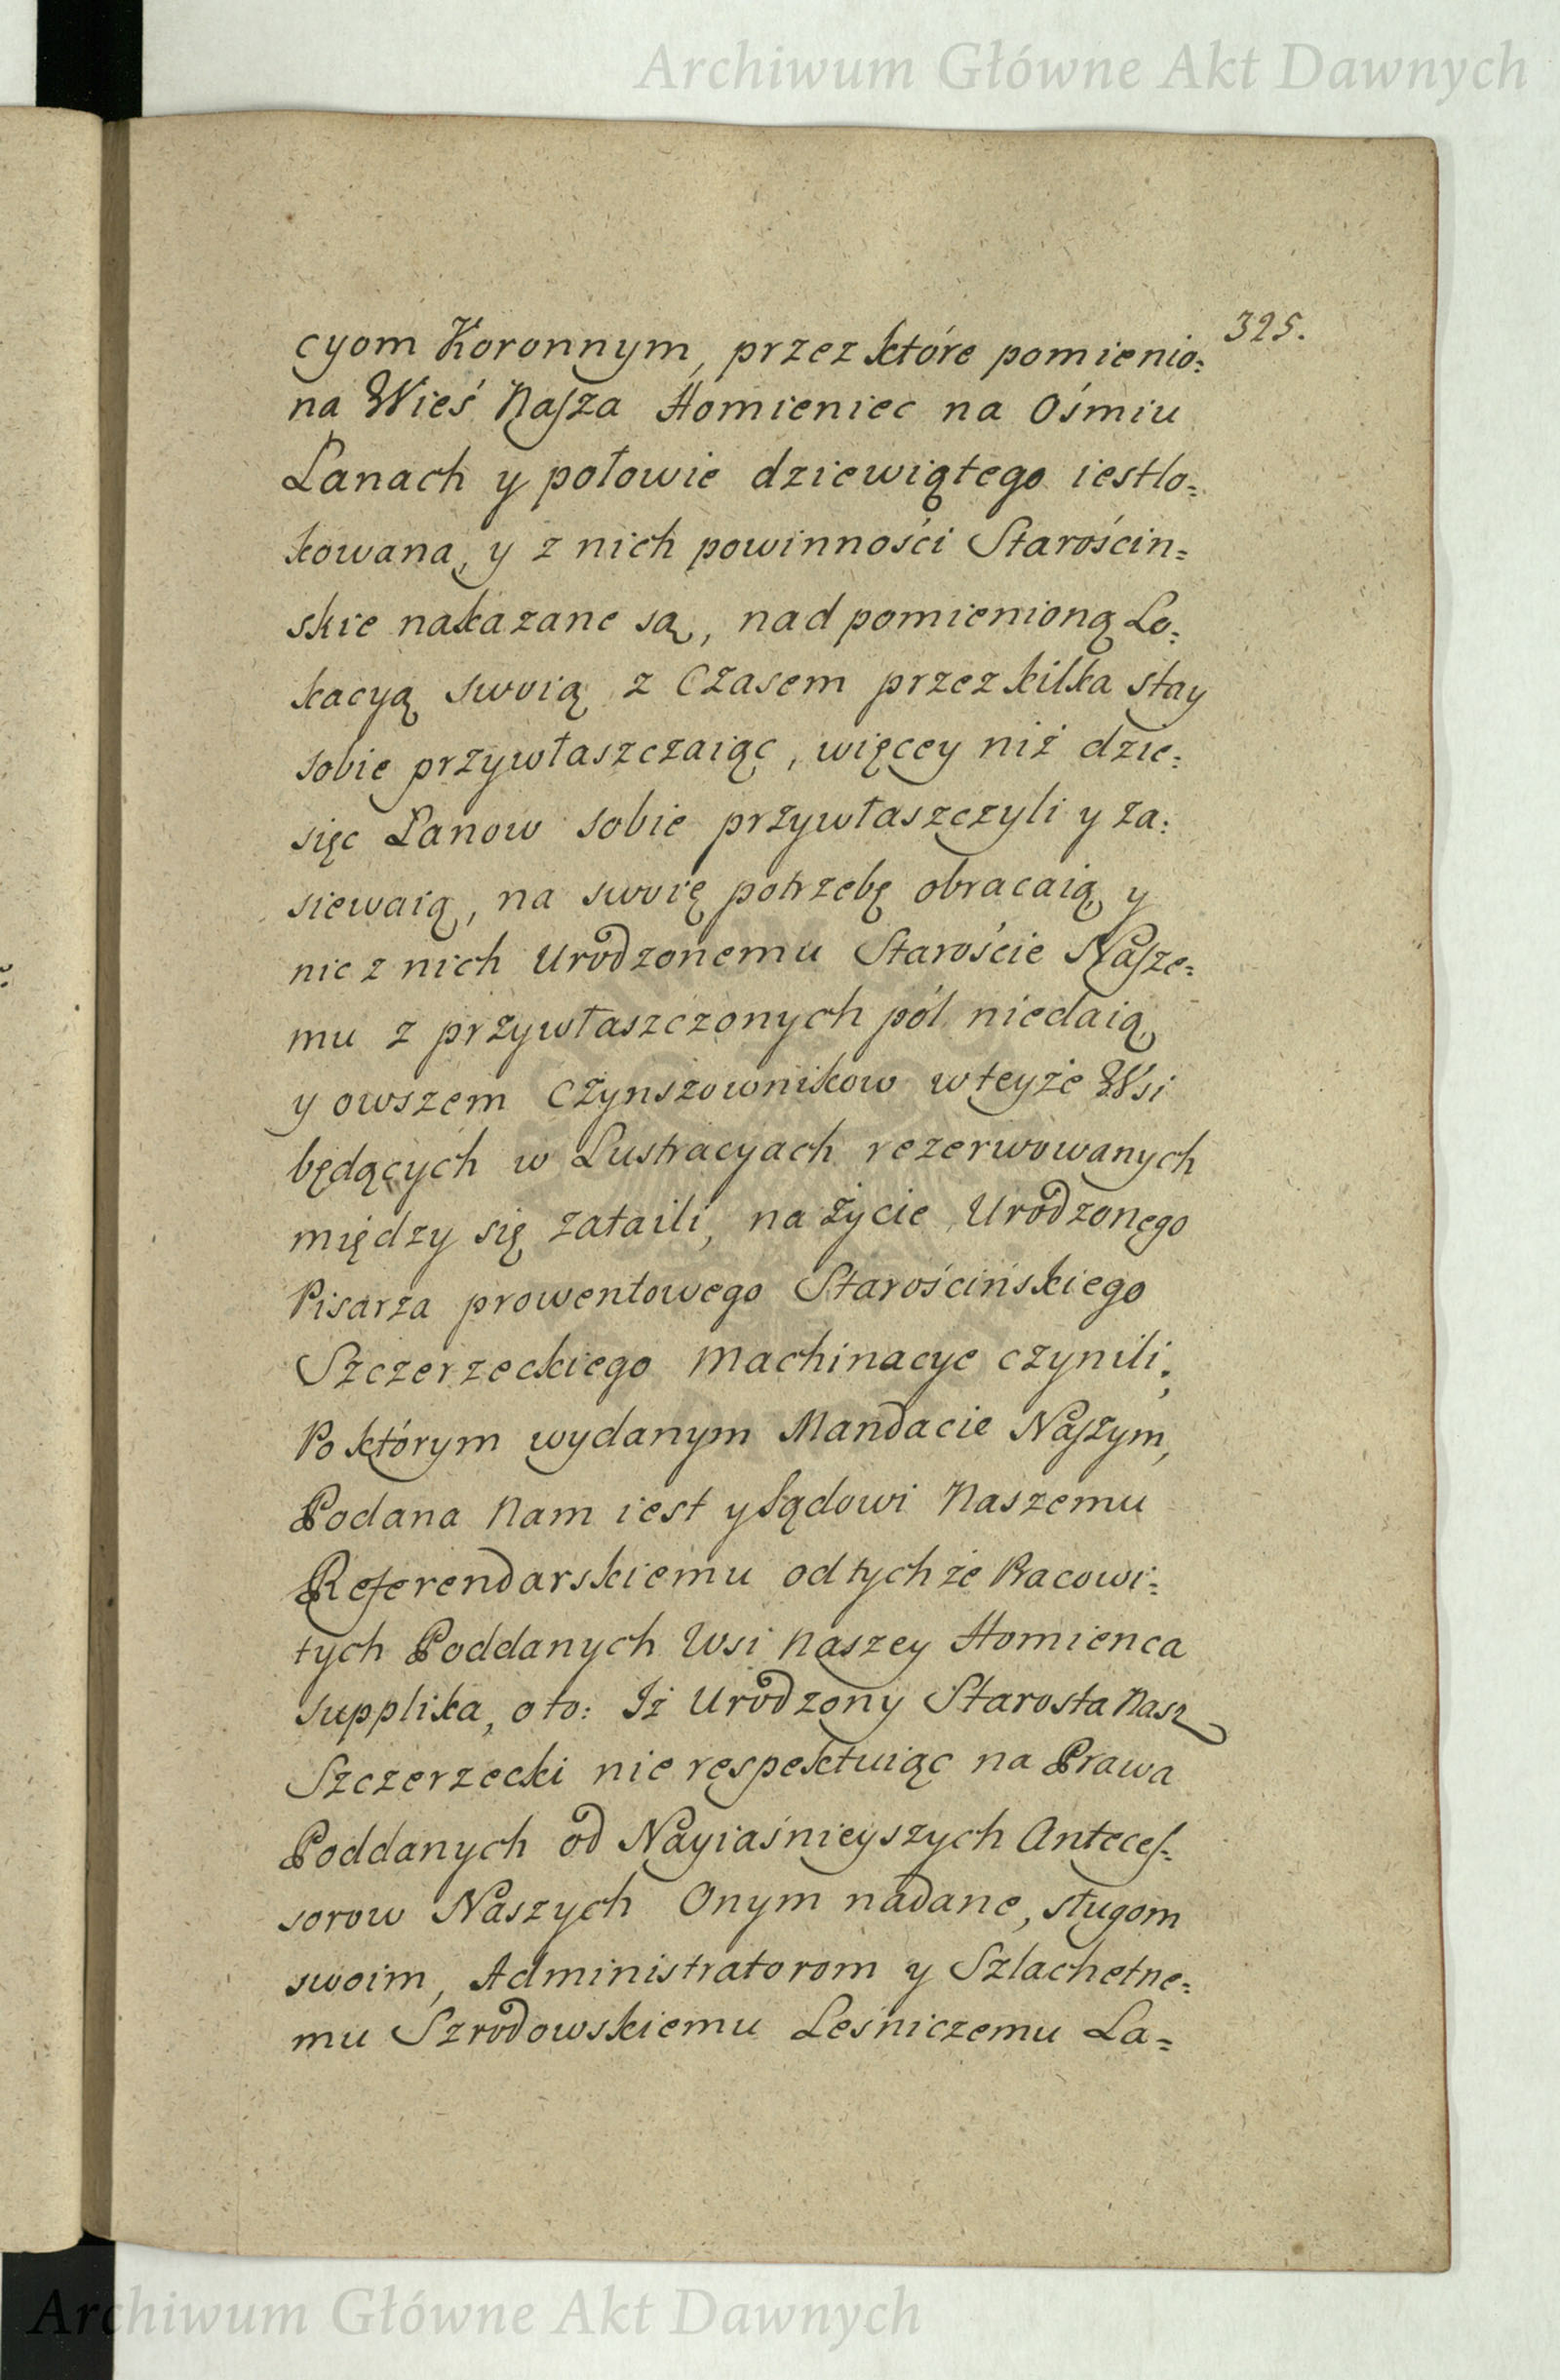 Archiwum Główne Akt Dawnych
325.
cyom Koronnym, przez które pomienio=
na Wieś Nasza Homieniec na Ośmiu
Łanach y połowie dziewiątego iest lo=
kowana, y z nich powinności Starościn=
skie nakazane są, nad pomienioną Lo=
kacyą swoią z Czasem przez kilka stay
sobie przywłaszczaiąc, więcey niż dzie=
sięc Łanow sobie przywłaszczyli y za=
siewaią, na swoię potrzebę obracaią, y
nic z nich Urodzonemu Staroście Nasze=
mu z przywłaszczonych pól niedaią,
y owszem Czynszownikow w teyże Wsi
będących w Lustracyach rezerwowanych
między się zataili, na życie Urodzonego
Pisarza prowentowego Starościńskiego
Szczerzeckiego Machinacye czynili;
Po którym wydanym Mandacie Naszym,
Podana Nam iest y Sądowi Naszemu
Referendarskiemu od tychże Racowi=
tych Poddanych Wsi Naszey Homienca
supplika, o to: Iż Urodzony Starosta Nasz
Szczerzecki nie respektuiąc na Prawa
Poddanych od Nayiaśnieyszych Anteces=
sorow Naszych Onym nadane, sługom
swoim, Administratorom y Szlachetne=
mu Szrodowskiemu Leśniczemu La=
Archiwum Główne Akt Dawnych